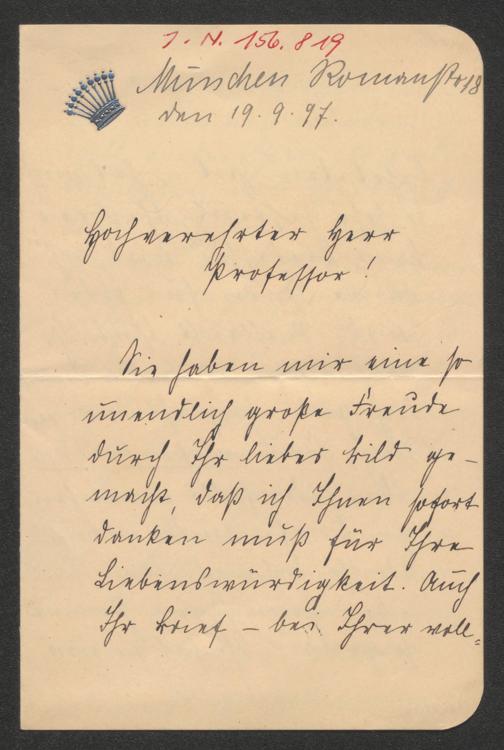 J. N. 156.819
München Romanstr 18
den 19. 9. 97.
Hochverehrter Herr
Professor!
Sie haben mir eine so
unendlich große Freude
durch Ihr liebes Bild ge-
macht, daß ich Ihnen sofort
danken muß für Ihre
Liebenswürdigkeit. Auch
Ihr Brief – bei Ihrer voll-